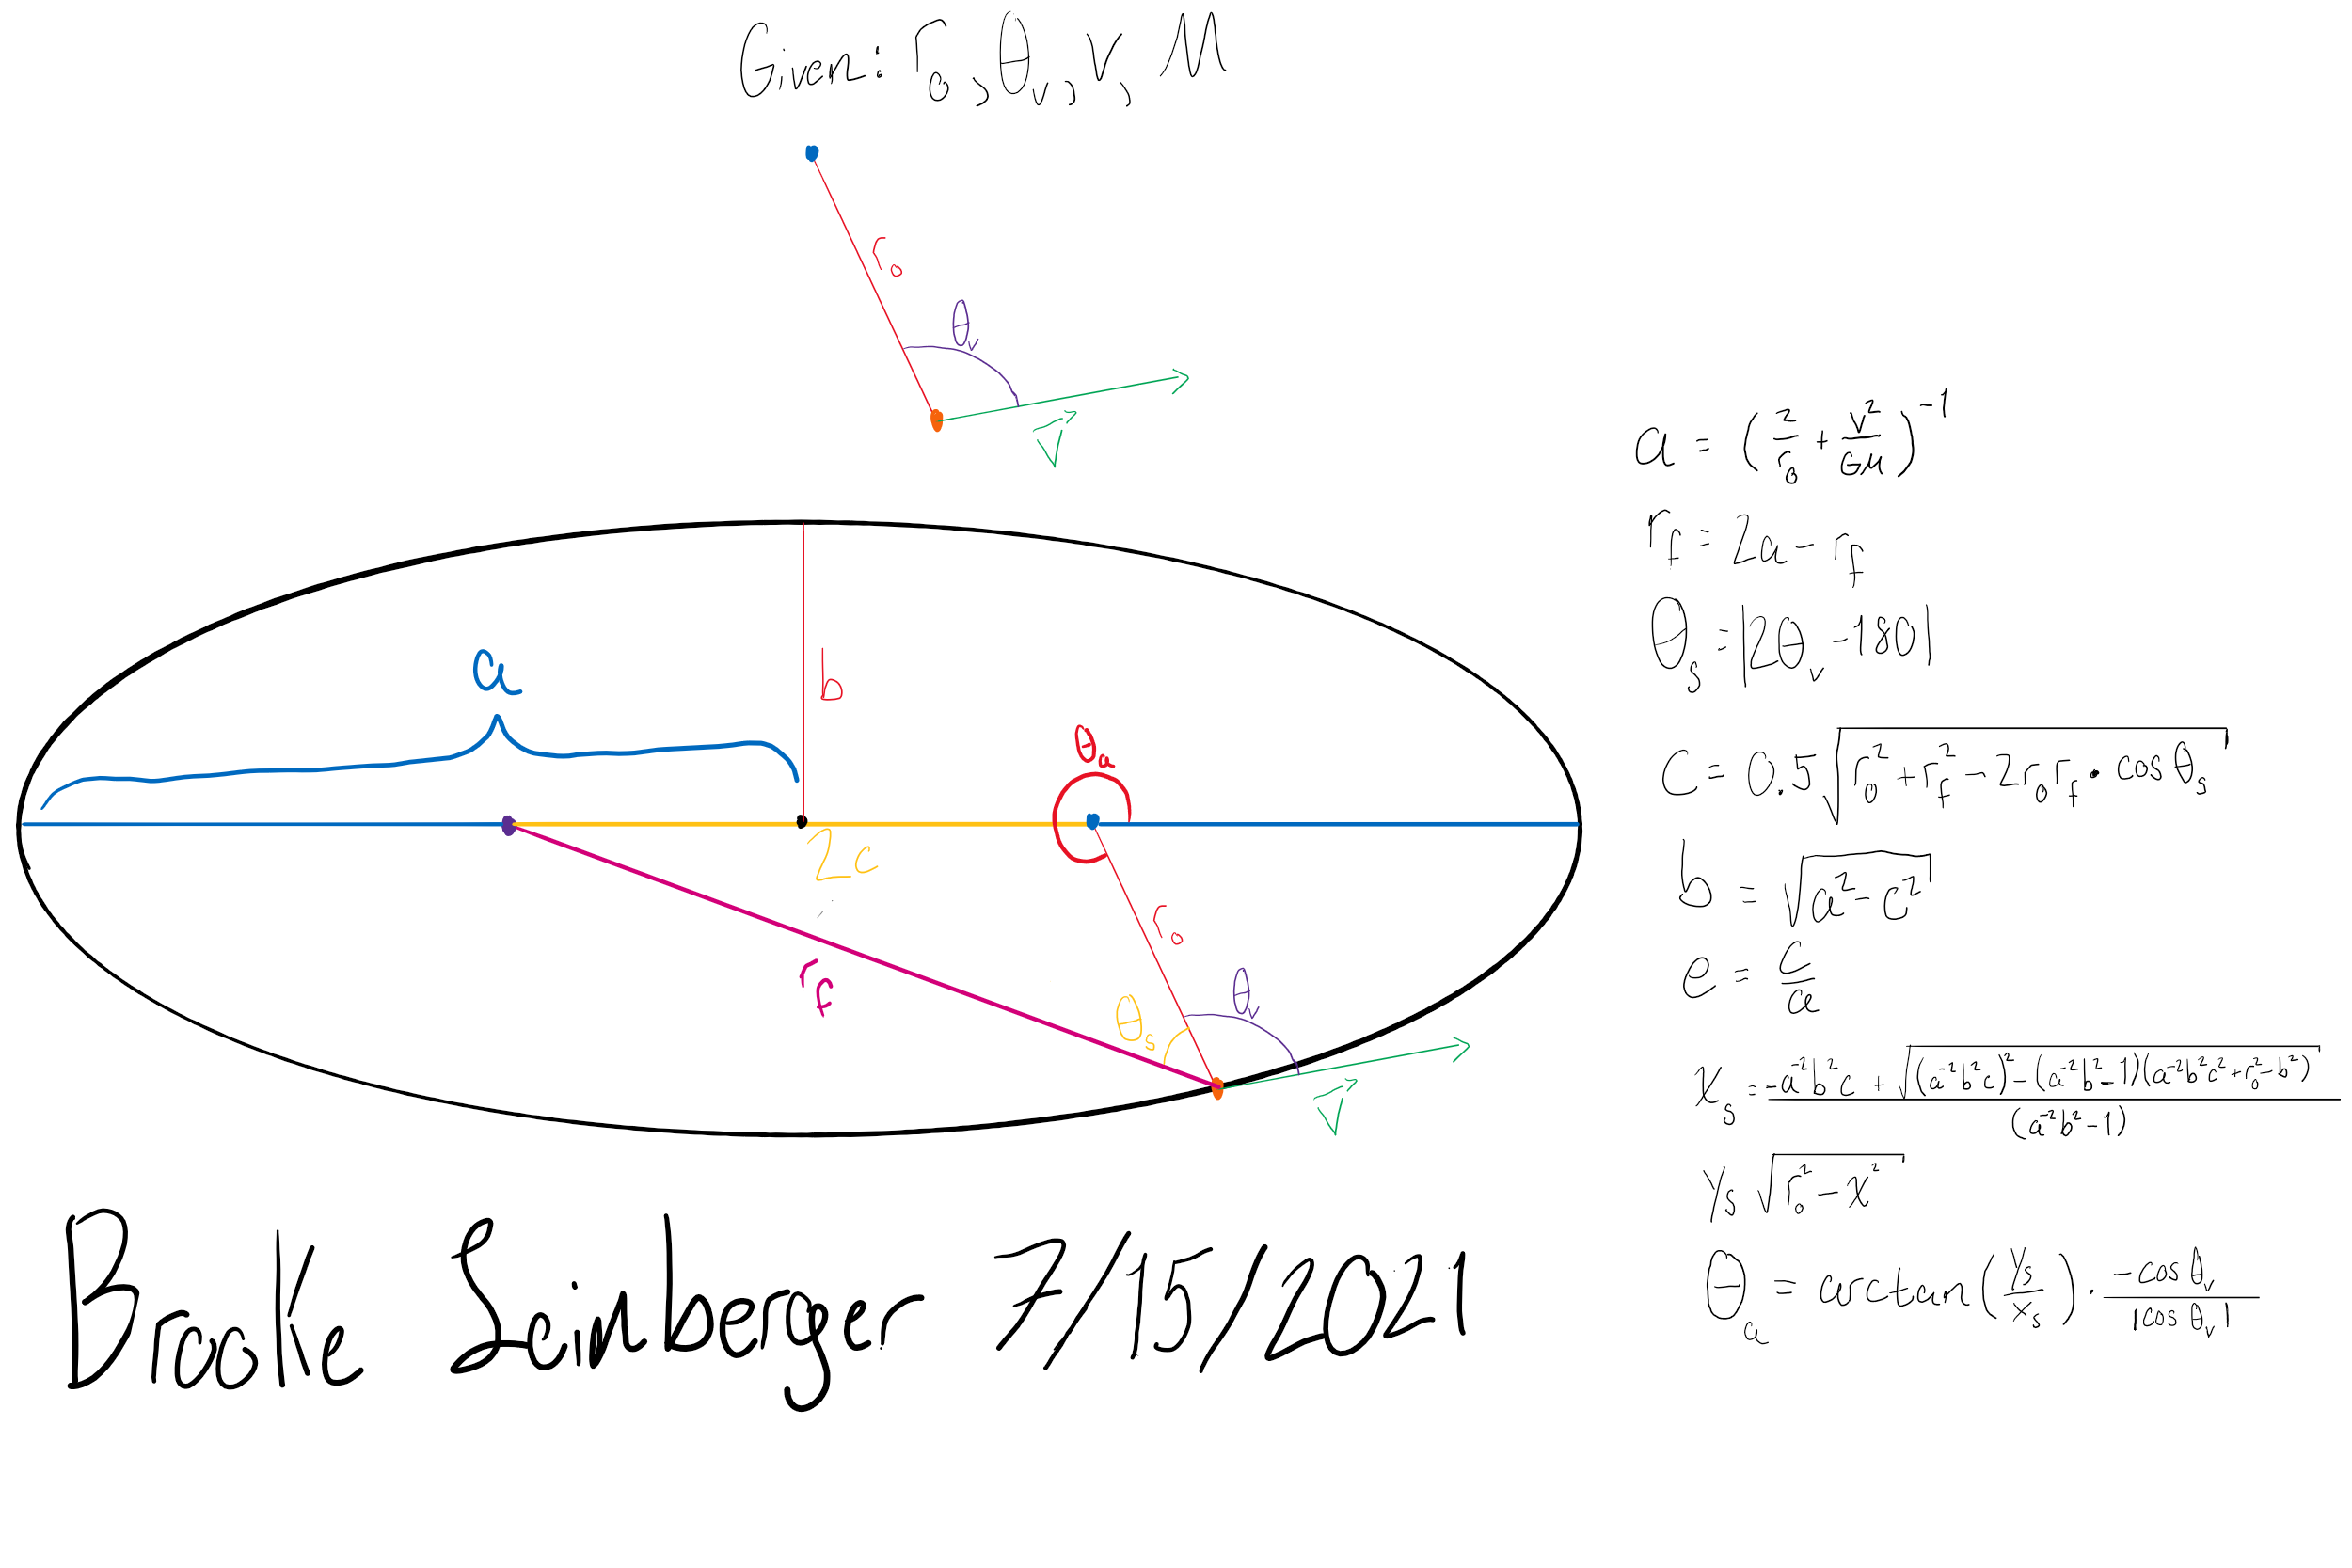 Given: r₀, θᵥ, v, M
r₀
θᵥ
v⃗
a = (2/r₀ + v²/GM)⁻¹
r_f = 2a - r_f
θₛ = |2θᵥ - 180|
a
b
θₐ
c = 0.5√(r₀² + r_f² - 2r₀r_f • cos θₛ)
2c
b = √(a² - c²)
r₀
r_f
e = c/a
θₛ
θᵥ
v⃗
xₛ = (-a⁻²b²c + √((a⁻²b²c)² - (a⁻²b² - 1)(a⁻²b²c² + r₀² - b²))) / (a⁻²b² - 1)
yₛ √(r₀² - x²)
θₐ = arctan(yₛ/xₛ) · -cos θᵥ/|cos θᵥ|
Brooke Leinberger 7/15/2021